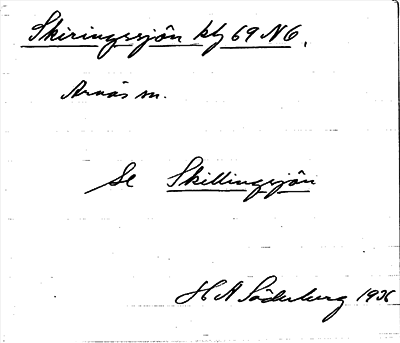 Skiringssjön klj 69 N6.
Arnäs m.
Se Skillingsjön
H A Söderberg 1936